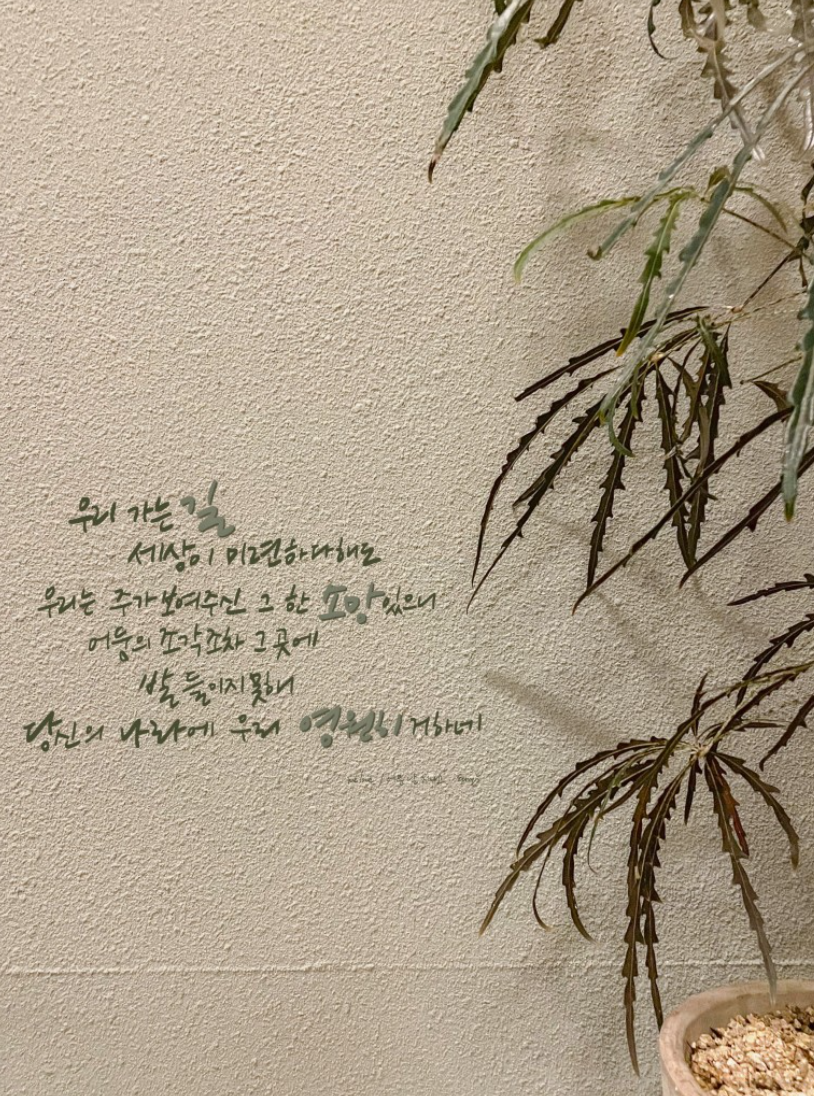 우리 가는 길
세상이 미련하다해도
우리는 주가 보여주신 그 한 소망 있으니
어둠의 조각조차 그 곳에
발 들이지 못해
당신의 나라에 우리 영원히 거하네